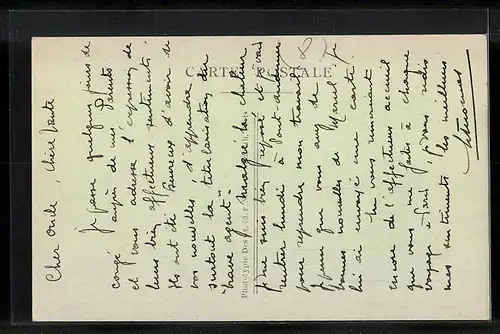 Cher oncle, chère tante
je passe quelques jours de
congé auprès de mes Parents
et vous adresse l'expression de
leurs bien affectueux sentiments.
Ils ont été heureux d'avoir de
vos nouvelles et d'apprendre
surtout la titularisation du
"brave agent". Malgré la chaleur
je me suis bien reposé et vais
rentrer lundi à
pour reprendre mon travail
J'espère que vous avez de
bonnes nouvelles de Marcel. Je
lui ai envoyé une carte.
En vous remerciant
encore de l'affectueux accueil
que vous me faites à chaque
voyage à Paris, je vous redis
mes sentiments les meilleurs
CARTE POSTALE
Phototypie